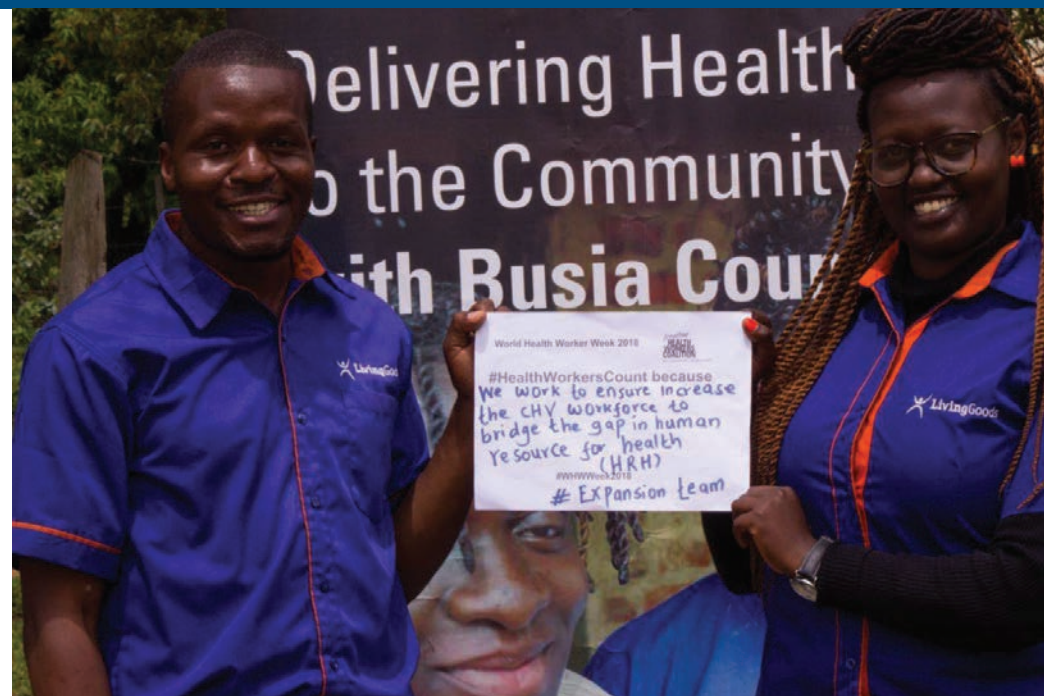 Delivering Health
to the Community
with Busia Coun
LivingGoods
World Health Worker Week 2018
HEALTH
WORKERS
COALITION
#HealthWorkersCount because
We work to ensure increase
the CHV workforce to
bridge the gap in human
resource for health
(HRH)
#WHWWeek2018
# Expansion team
LivingGoods